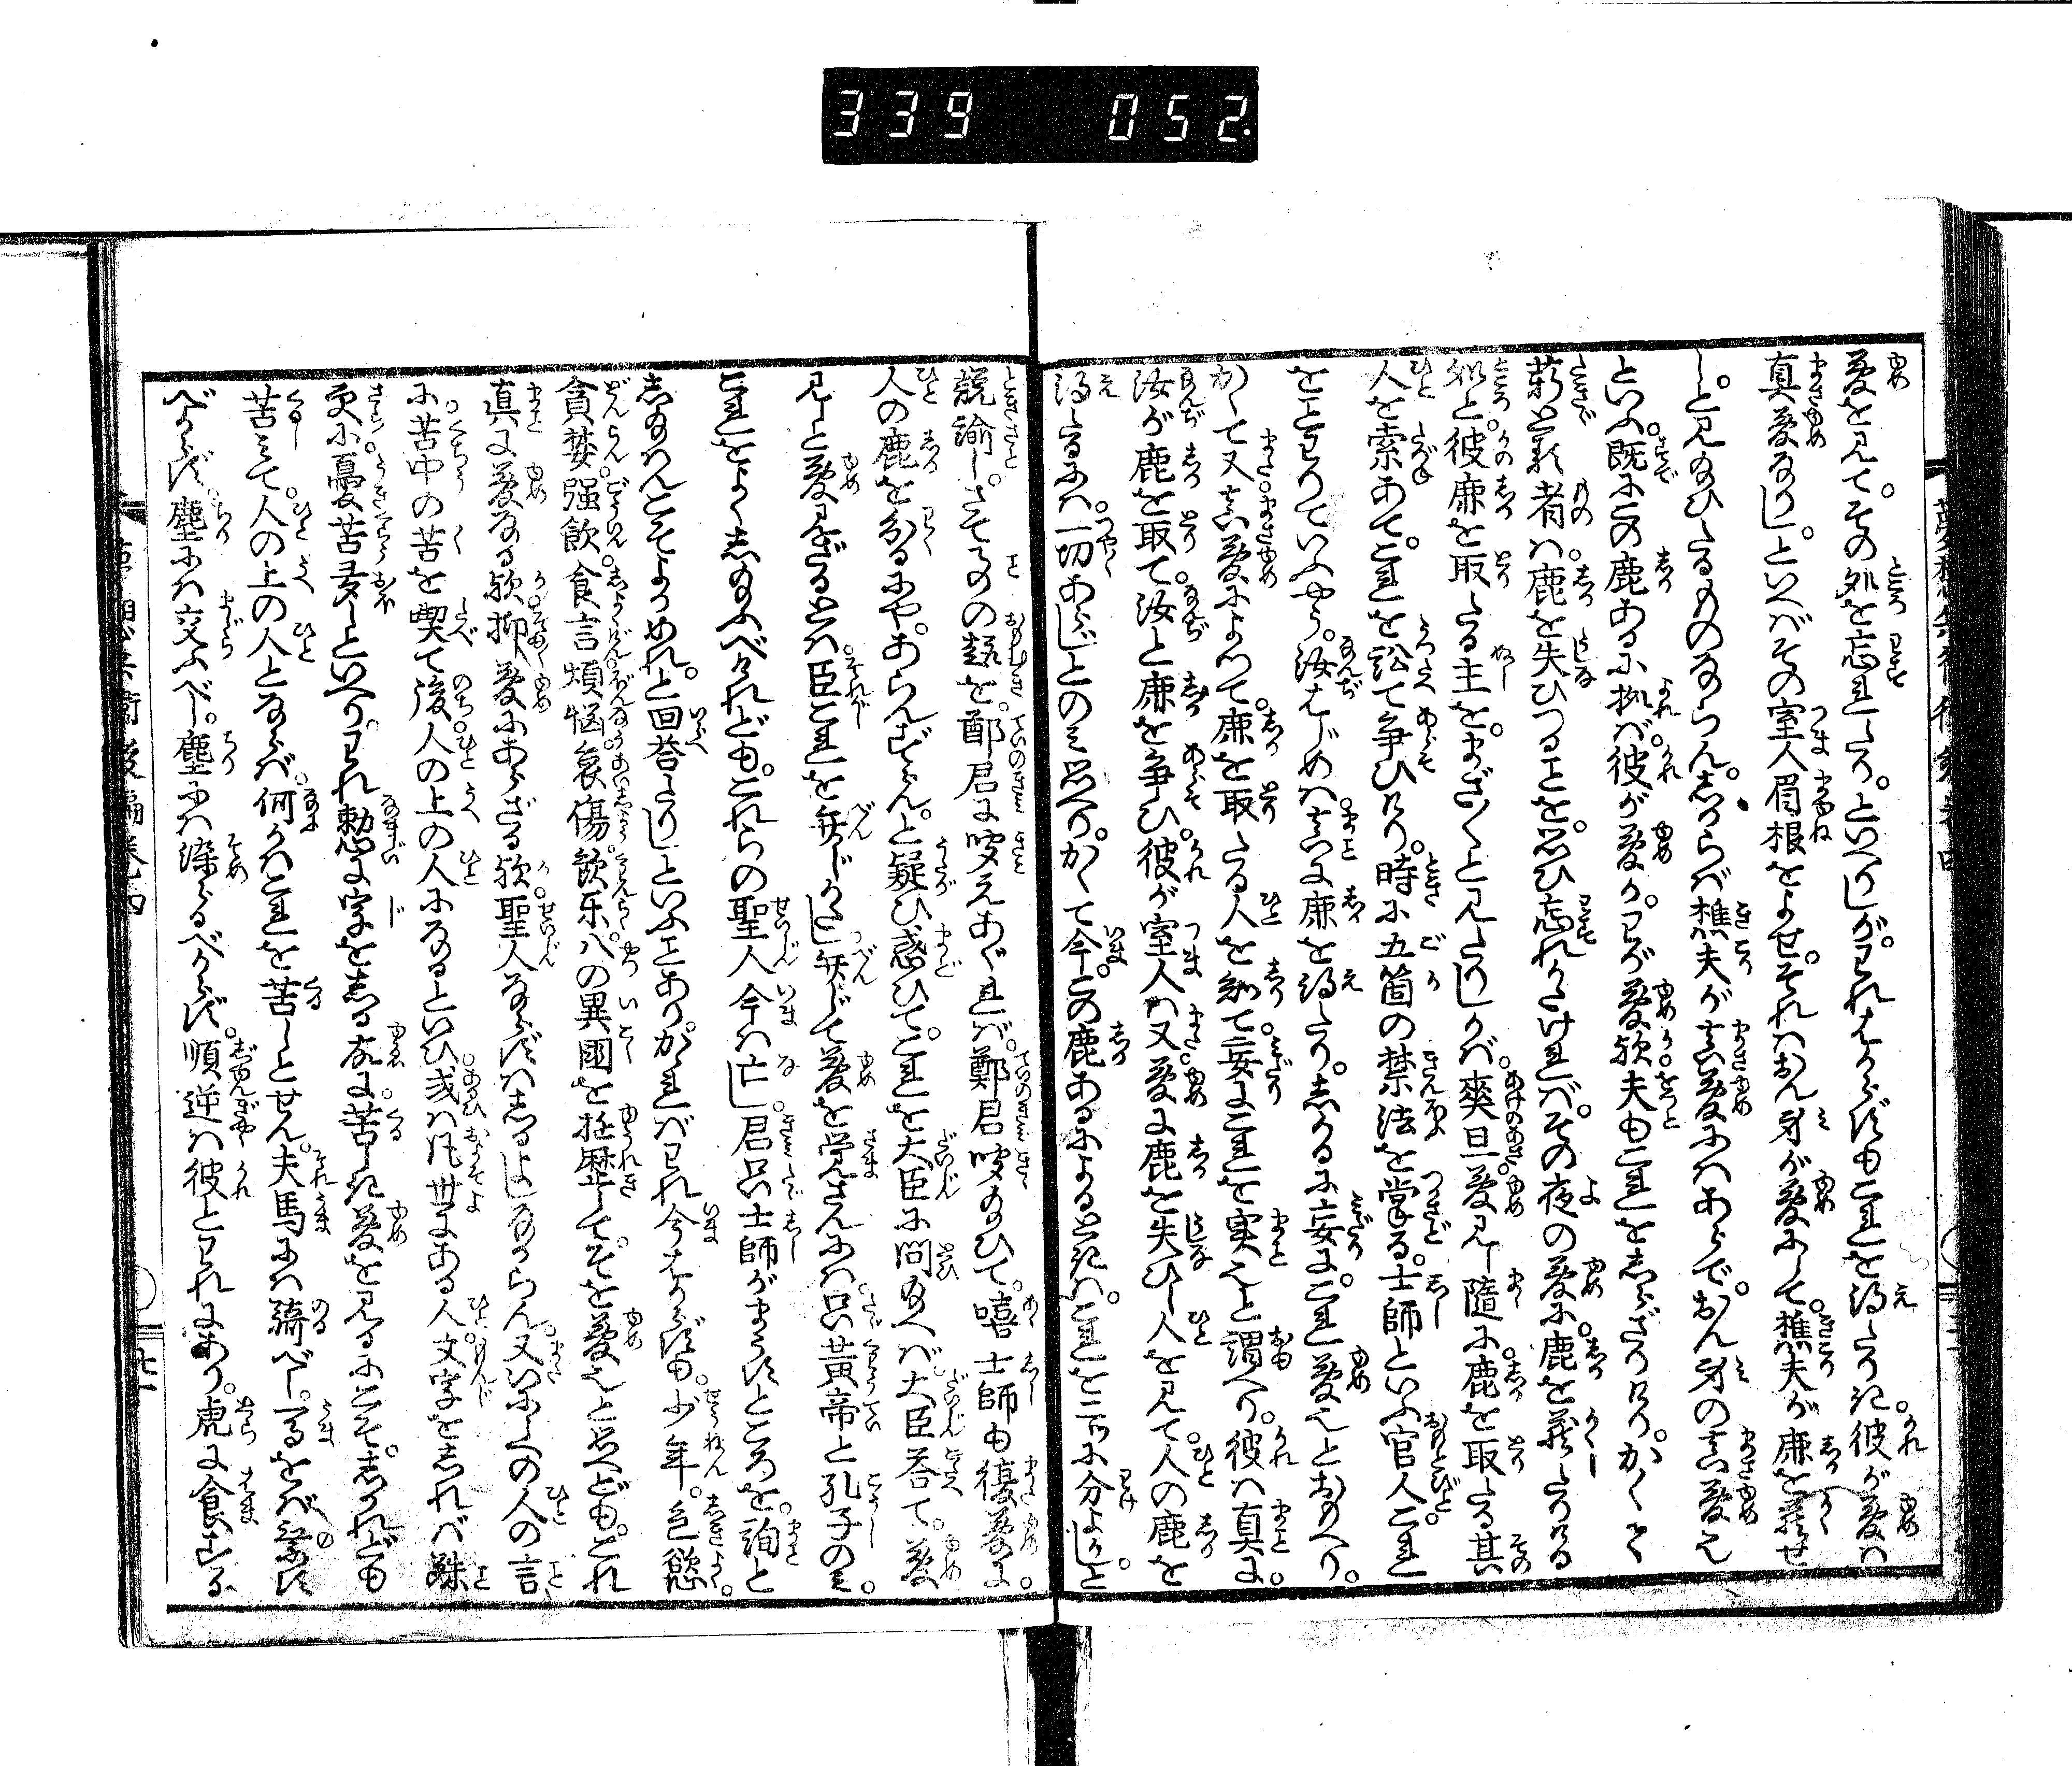 339 052.
夢を見て。その処を忘れたり。といへりしが。われはからずもこれを得たりき。彼が夢は
真夢なりし。といへばその室人眉根をよせ。それはおん身が夢にして。樵夫が鹿を蔵せ
しと見給ひたるものならん。しからば樵夫が真夢にはあらで。おん身の真夢也
といふ。既にこの鹿あるに拠ば。彼が夢か。わが夢か。欤夫もこれをしらざりけり。かくて
薪とる者は。鹿を失ひつることを。思ひ忘れがたければ。その夜の夢に。鹿を蔵したりける
処と。彼鹿を取たる主を。まざ〳〵と見たりしかば。爽旦。夢見し隨に。鹿を取たる其
人を索あて。これを訟て争ひけり。時に五箇の禁法を掌る。士師といふ官人。これ
をことわりていふやう。汝はじめは。真に鹿を得たり。しかるに妄に。これ夢也とおもへり。
かくて又真夢によつて。鹿を取たる人を知て。妄にこれを実也と謂へり。彼は真に。
汝が鹿を取て。汝と鹿を争ひ。彼が室人は又。夢に鹿を失ひし人を見て。人の鹿を
得たるには。一切あらじとのみ思へり。かくて今。この鹿あるによるときは。これを二ツに分よかしと。
説諭し。さてその趣を。鄭君に聞えあぐれば。鄭君聞給ひて。嘻士師も復夢に。
人の鹿を分るにや。あらんずらん。と疑ひ惑ひて。これを大臣に問給へば。大臣答て。夢
見しと夢見ざるとは。臣これを弁じがたし。弁じて夢を覚さんには。只黄帝と孔子のみ。
これをよくし給ふべけれども。これらの聖人今は亡し。君只士師がまうすところを。詢と
し給はんこそよかめれ。と回答たりしといふことあり。かかれば。われ今はからずも。少年。色慾。
貪婪。强飲。食言。煩悩。哀傷。歓楽。八の異國を遊歴して。そを夢也と思へども。これ
真に夢なる欤。抑夢にあらざる欤。聖人ならずはしるよしなからん。又いにしへの人の言
に。苦中の苦を喫て後。人の上の人になるといひ。或は凡世にある人。文字をしれば殊
更に。憂苦多しといへり。われ憖に字をしる故に。苦しき夢を見るにこそ。しかれども
苦みて。人の上の人とならば。何かはこれを苦しとせん。夫馬には騎べし。するをば禁ず
べからず。塵には交ふべし。塵には染るべからず。順逆は彼とわれにあり。虎に食はるる